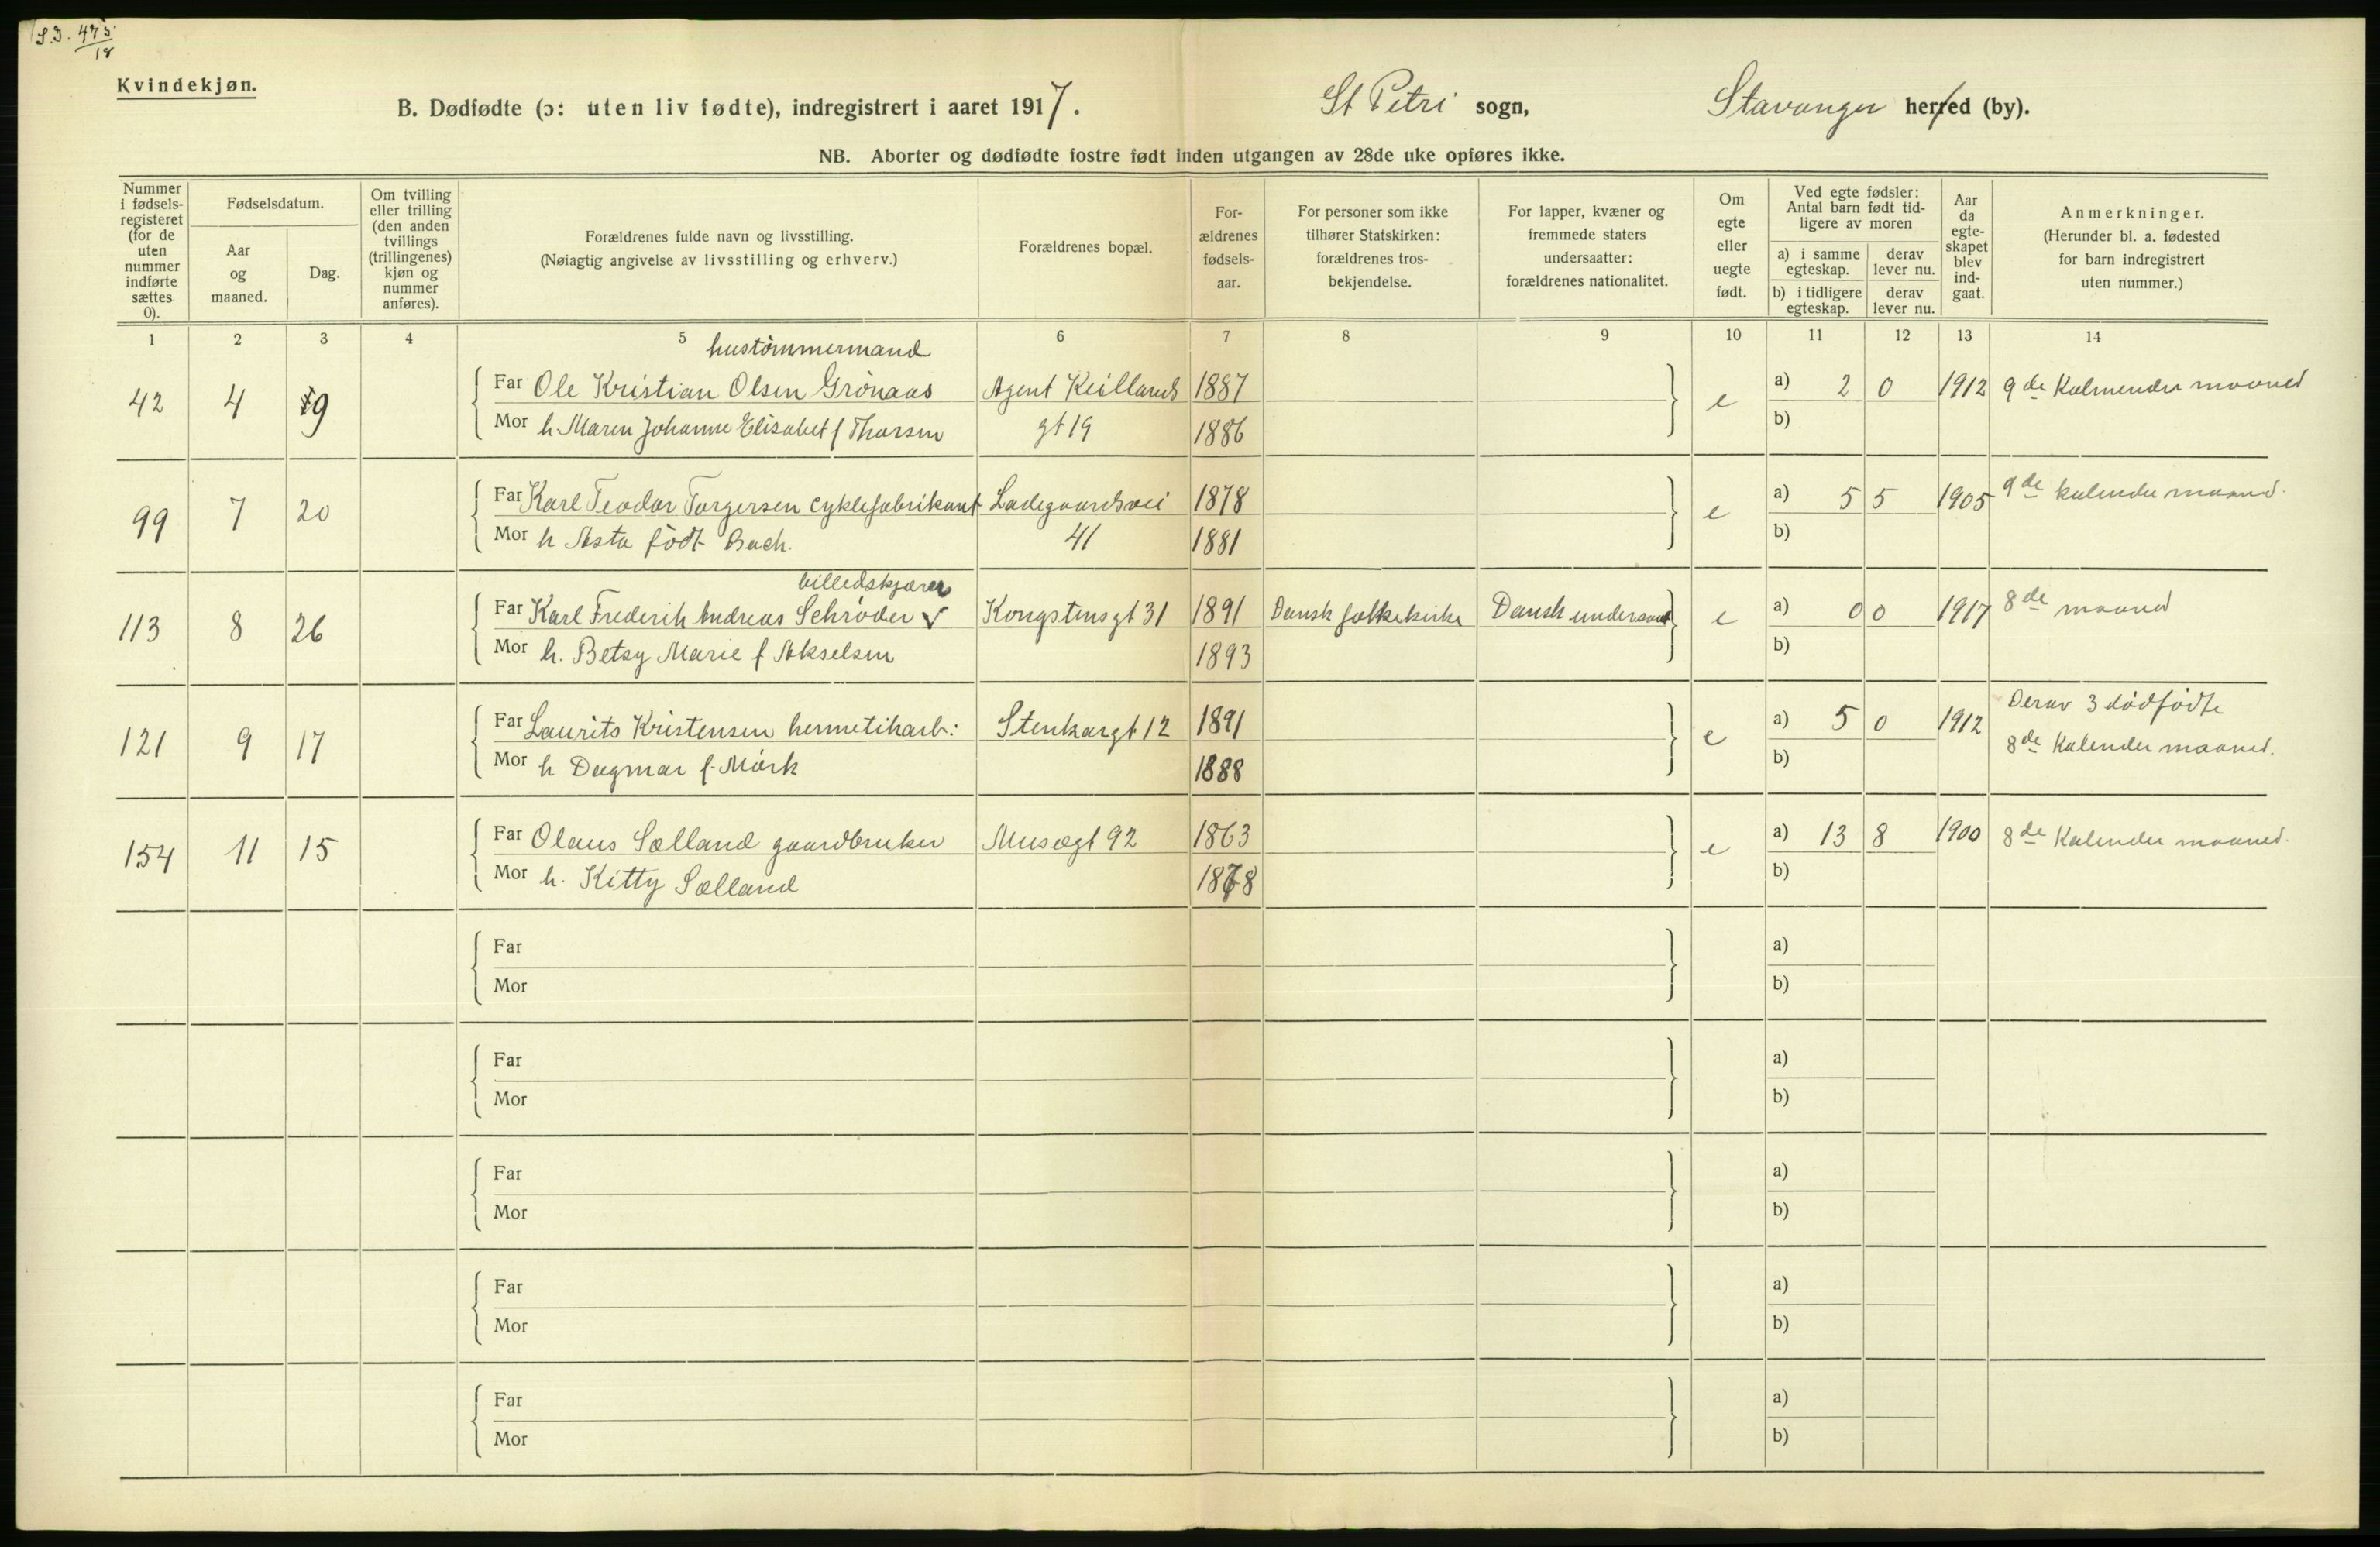 S.J. 475/18
Kvindekjøn.
B. Dødfødte (ɔ: uten liv fødte), indregistrert i aaret 1917.
St Petri sogn,
Stavanger herred (by).
NB. Aborter og dødfødte fostre født inden utgangen av 28de uke opføres ikke.
Nummer i fødsels-registeret (for de uten nummer indførte sættes 0).
Fødselsdatum.
Aar og maaned.
Dag.
Om tvilling eller trilling (den anden tvillings (trillingenes) kjøn og nummer anføres).
Forældrenes fulde navn og livsstilling.
(Nøiagtig angivelse av livsstilling og erhverv.)
Forældrenes bopæl.
For-ældrenes fødsels-aar.
For personer som ikke tilhører Statskirken: forældrenes tros-bekjendelse.
For lapper, kvæner og fremmede staters undersaatter: forældrenes nationalitet.
Om egte eller uegte født.
Ved egte fødsler: Antal barn født tid-ligere av moren
a) i samme egteskap.
derav lever nu.
b) i tidligere egteskap.
derav lever nu.
Aar da egte-skapet blev ind-gaat.
Anmerkninger.
(Herunder bl. a. fødested for barn indregistrert uten nummer.)
1 2 3 4 5 6 7 8 9 10 11 12 13 14
hustømmermand
42 4 9 Far Ole Kristian Olsen Grönaas Agent Keillands 1887 e a) 2 0 1912 9de Kalender maaned
Mor h. Maren Johanne Elisabet f Thorsen gt 19 1886 b)
99 7 20 Far Karl Teodor Torgersen cyklefabrikant Ladegaardsvei 1878 e a) 5 5 1905 9de kalender maaned.
Mor h Asta født Bach. 41 1881 b)
billedskjærer
113 8 26 Far Karl Frederik Andreas Schrøder Kongstensgt 31 1891 Dansk folkekirke Dansk undersaat e a) 0 0 1917 8de maaned
Mor h. Betsy Marie f Akselsen 1893 b)
Derav 3 dødfødte
121 9 17 Far Laurits Kristensen hermetikarb: Stenkargt 12 1891 e a) 5 0 1912 8de Kalender maaned.
Mor h Dagmar f. Mörk 1888 b)
154 11 15 Far Olaus Sælland gaardbruker Musegt 92 1863 e a) 13 8 1900 8de Kalender maaned.
Mor h. Kitty Sælland 1878 b)
Far a)
Mor b)
Far a)
Mor b)
Far a)
Mor b)
Far a)
Mor b)
Far a)
Mor b)